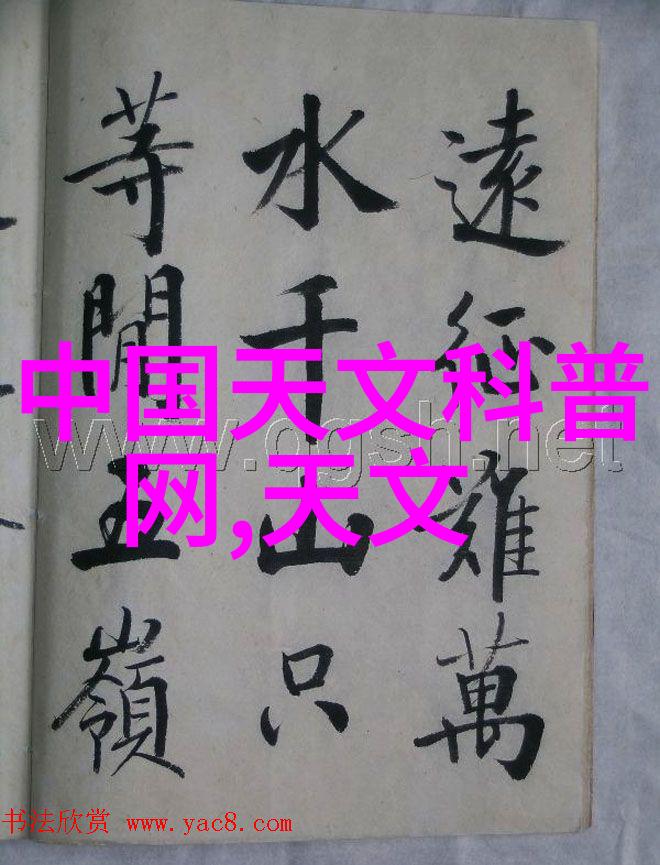 遠征難萬
水千山只
等閒五嶺
中国天文科普
网,天文
书法欣赏 www.yac8.com